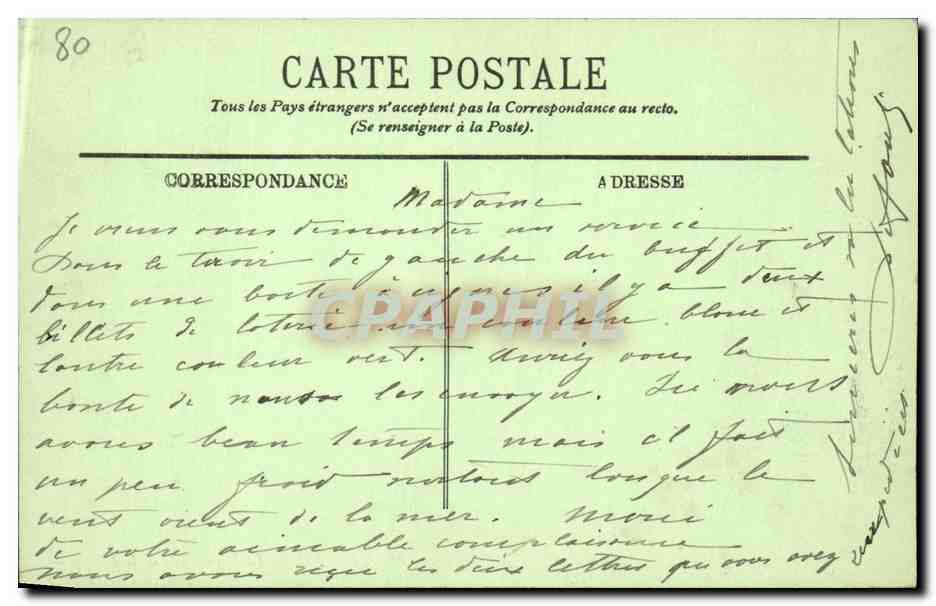 80
CARTE POSTALE
Tous les Pays étrangers n'acceptent pas la Correspondance au recto.
(Se renseigner à la Poste).
CORRESPONDANCE
ADRESSE
Madame
Je viens vous demander un service
Dans le tiroir de gauche du buffet et
dans une boite à il y a deux
billets de loterie une couleur blanc et
l'autre couleur vert. Auriez vous la
bonté de nous les envoyer. Ici nous
avons beau temps mais il fait
un peu froid surtout lorsque le
vent vient de la mer. Merci
de votre aimable complaisance
nous avons reçu les deux lettres que vous avez
expédiées
Sincères salutations
CPAPHIL